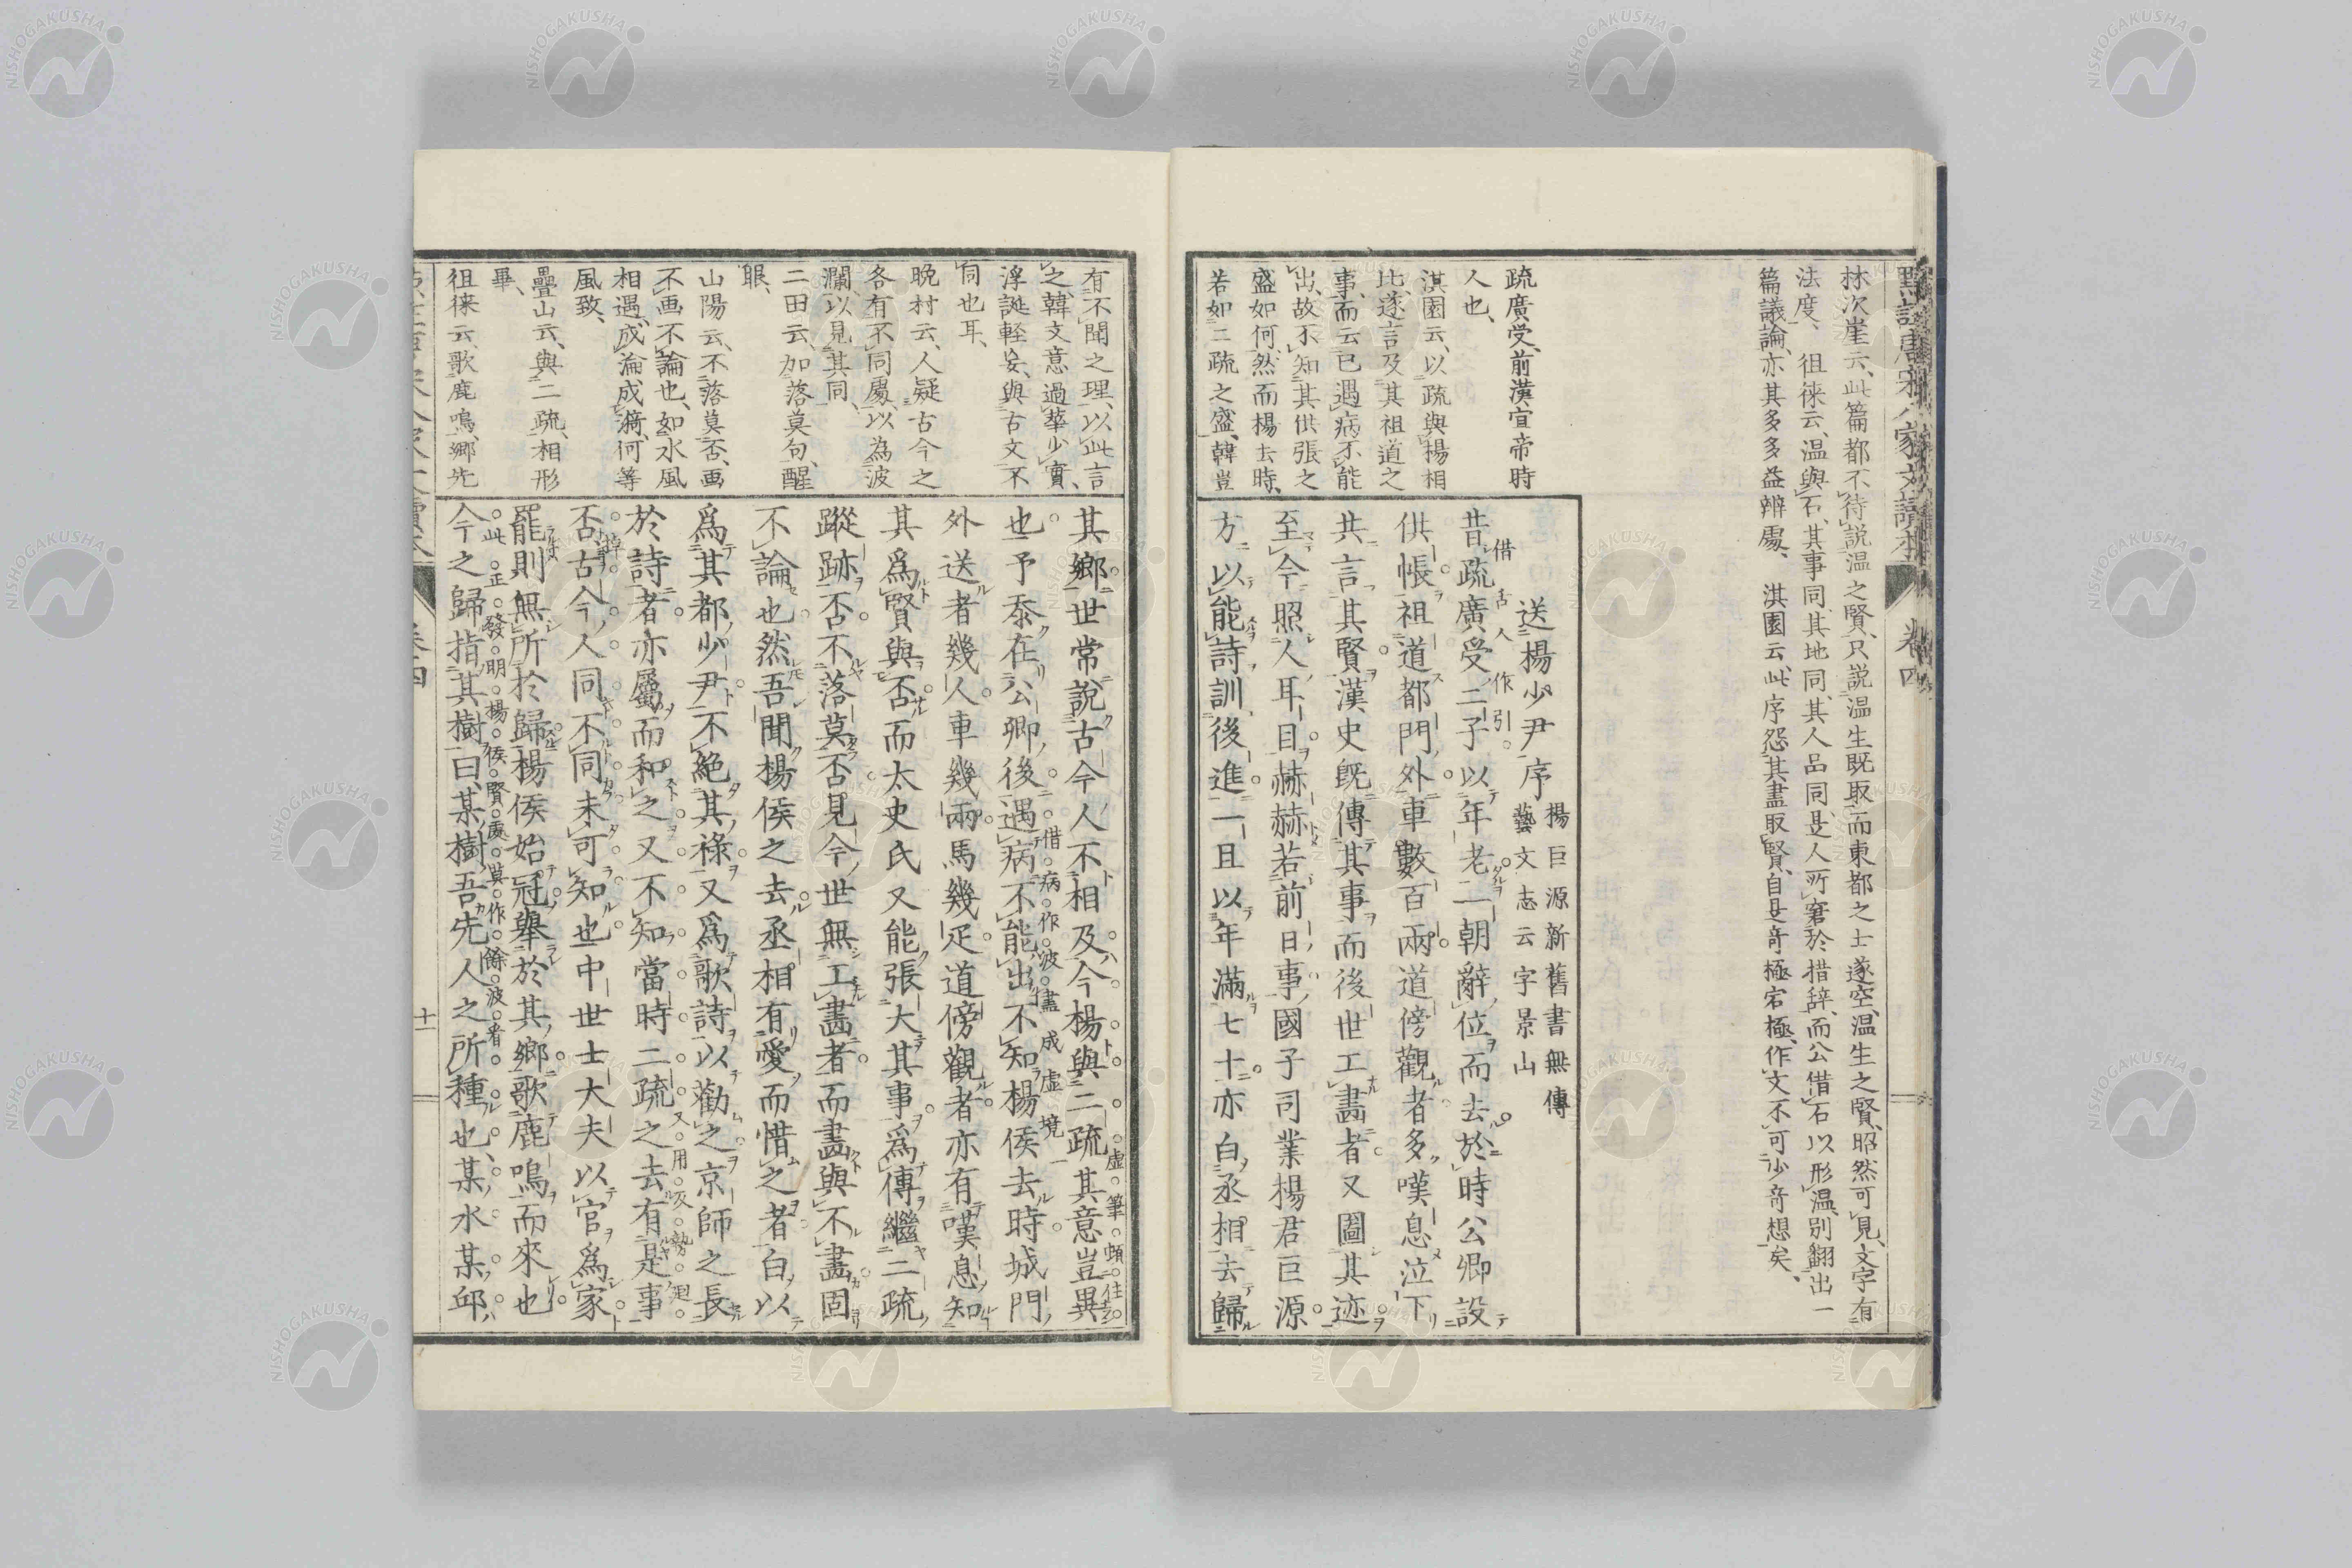 林次崖云、此篇都不待說温之賢、只説温生既取而東都之士遂空、温生之賢、昭然可見、文字有
法度、 徂徠云、温與石、其事同、其地同、其人品同、是人所窘於措辞、而公借石以形温、別翻出一
篇議論、亦其多多益辨處、 淇園云、此序怨其盡取賢、自是奇極宕極、作文不可少奇想矣、
疏廣受、前漢宣帝時
人也、
淇園云、以疏與楊相
比、遂言及其祖道之
事、而云已遇病不能
出、故不知其供張之
盛如何、然而楊去時、
若如二疏之盛、韓豈
送楊少尹序
楊巨源新舊書無傳
藝文志云字景山
借古人作引
昔疏廣受二子以年老一朝辭位而去於時公卿設
供帳祖道都門外車數百兩道傍觀者多嘆息泣下
共言其賢漢史既傳其事而後世工畵者又圖其迹
至今照人耳目赫赫若前日事國子司業楊君巨源
方以能詩訓後進一旦以年滿七十亦白丞相去歸
卷四
有不聞之理、以此言
之、韓文意過華少實、
浮誕軽妄、與古文不
同也耳、
晩村云、人疑古今之
各有不同處、以為波
瀾、以見其同、
二田云、加落莫句、醒
眼、
山陽云、不落莫否、画
不画不論也、如水風
相遇、成淪成漪、何等
風致、
疊山云、與二疏、相形
畢、
徂徠云、歌鹿鳴、郷先
其郷世常説古今人不相及今楊與二疏其意豈異
虚筆頓住
也予忝在公卿後遇病不能出不知楊侯去時城門
借病作波畵成虚境
外送者幾人車幾兩馬幾疋道傍觀者亦有嘆息知
其爲賢與否而太史氏又能張大其事爲傳繼二疏
蹤跡否不落莫否見今世無工畵者而畵與不畵固
不論也然吾聞楊侯之去丞相有愛而惜之者白以
爲其都少尹不絶其祿又爲歌詩以勸之京師之長
於詩者亦屬而和之又不知當時二疏之去有是事
否古今人同不同未可知也中世士大夫以官爲家
罷則無所於歸楊侯始冠舉於其郷歌鹿鳴而來也
此正發明楊侯賢處莫作餘波看
今之歸指其樹曰某樹吾先人之所種也某水某邱
十一